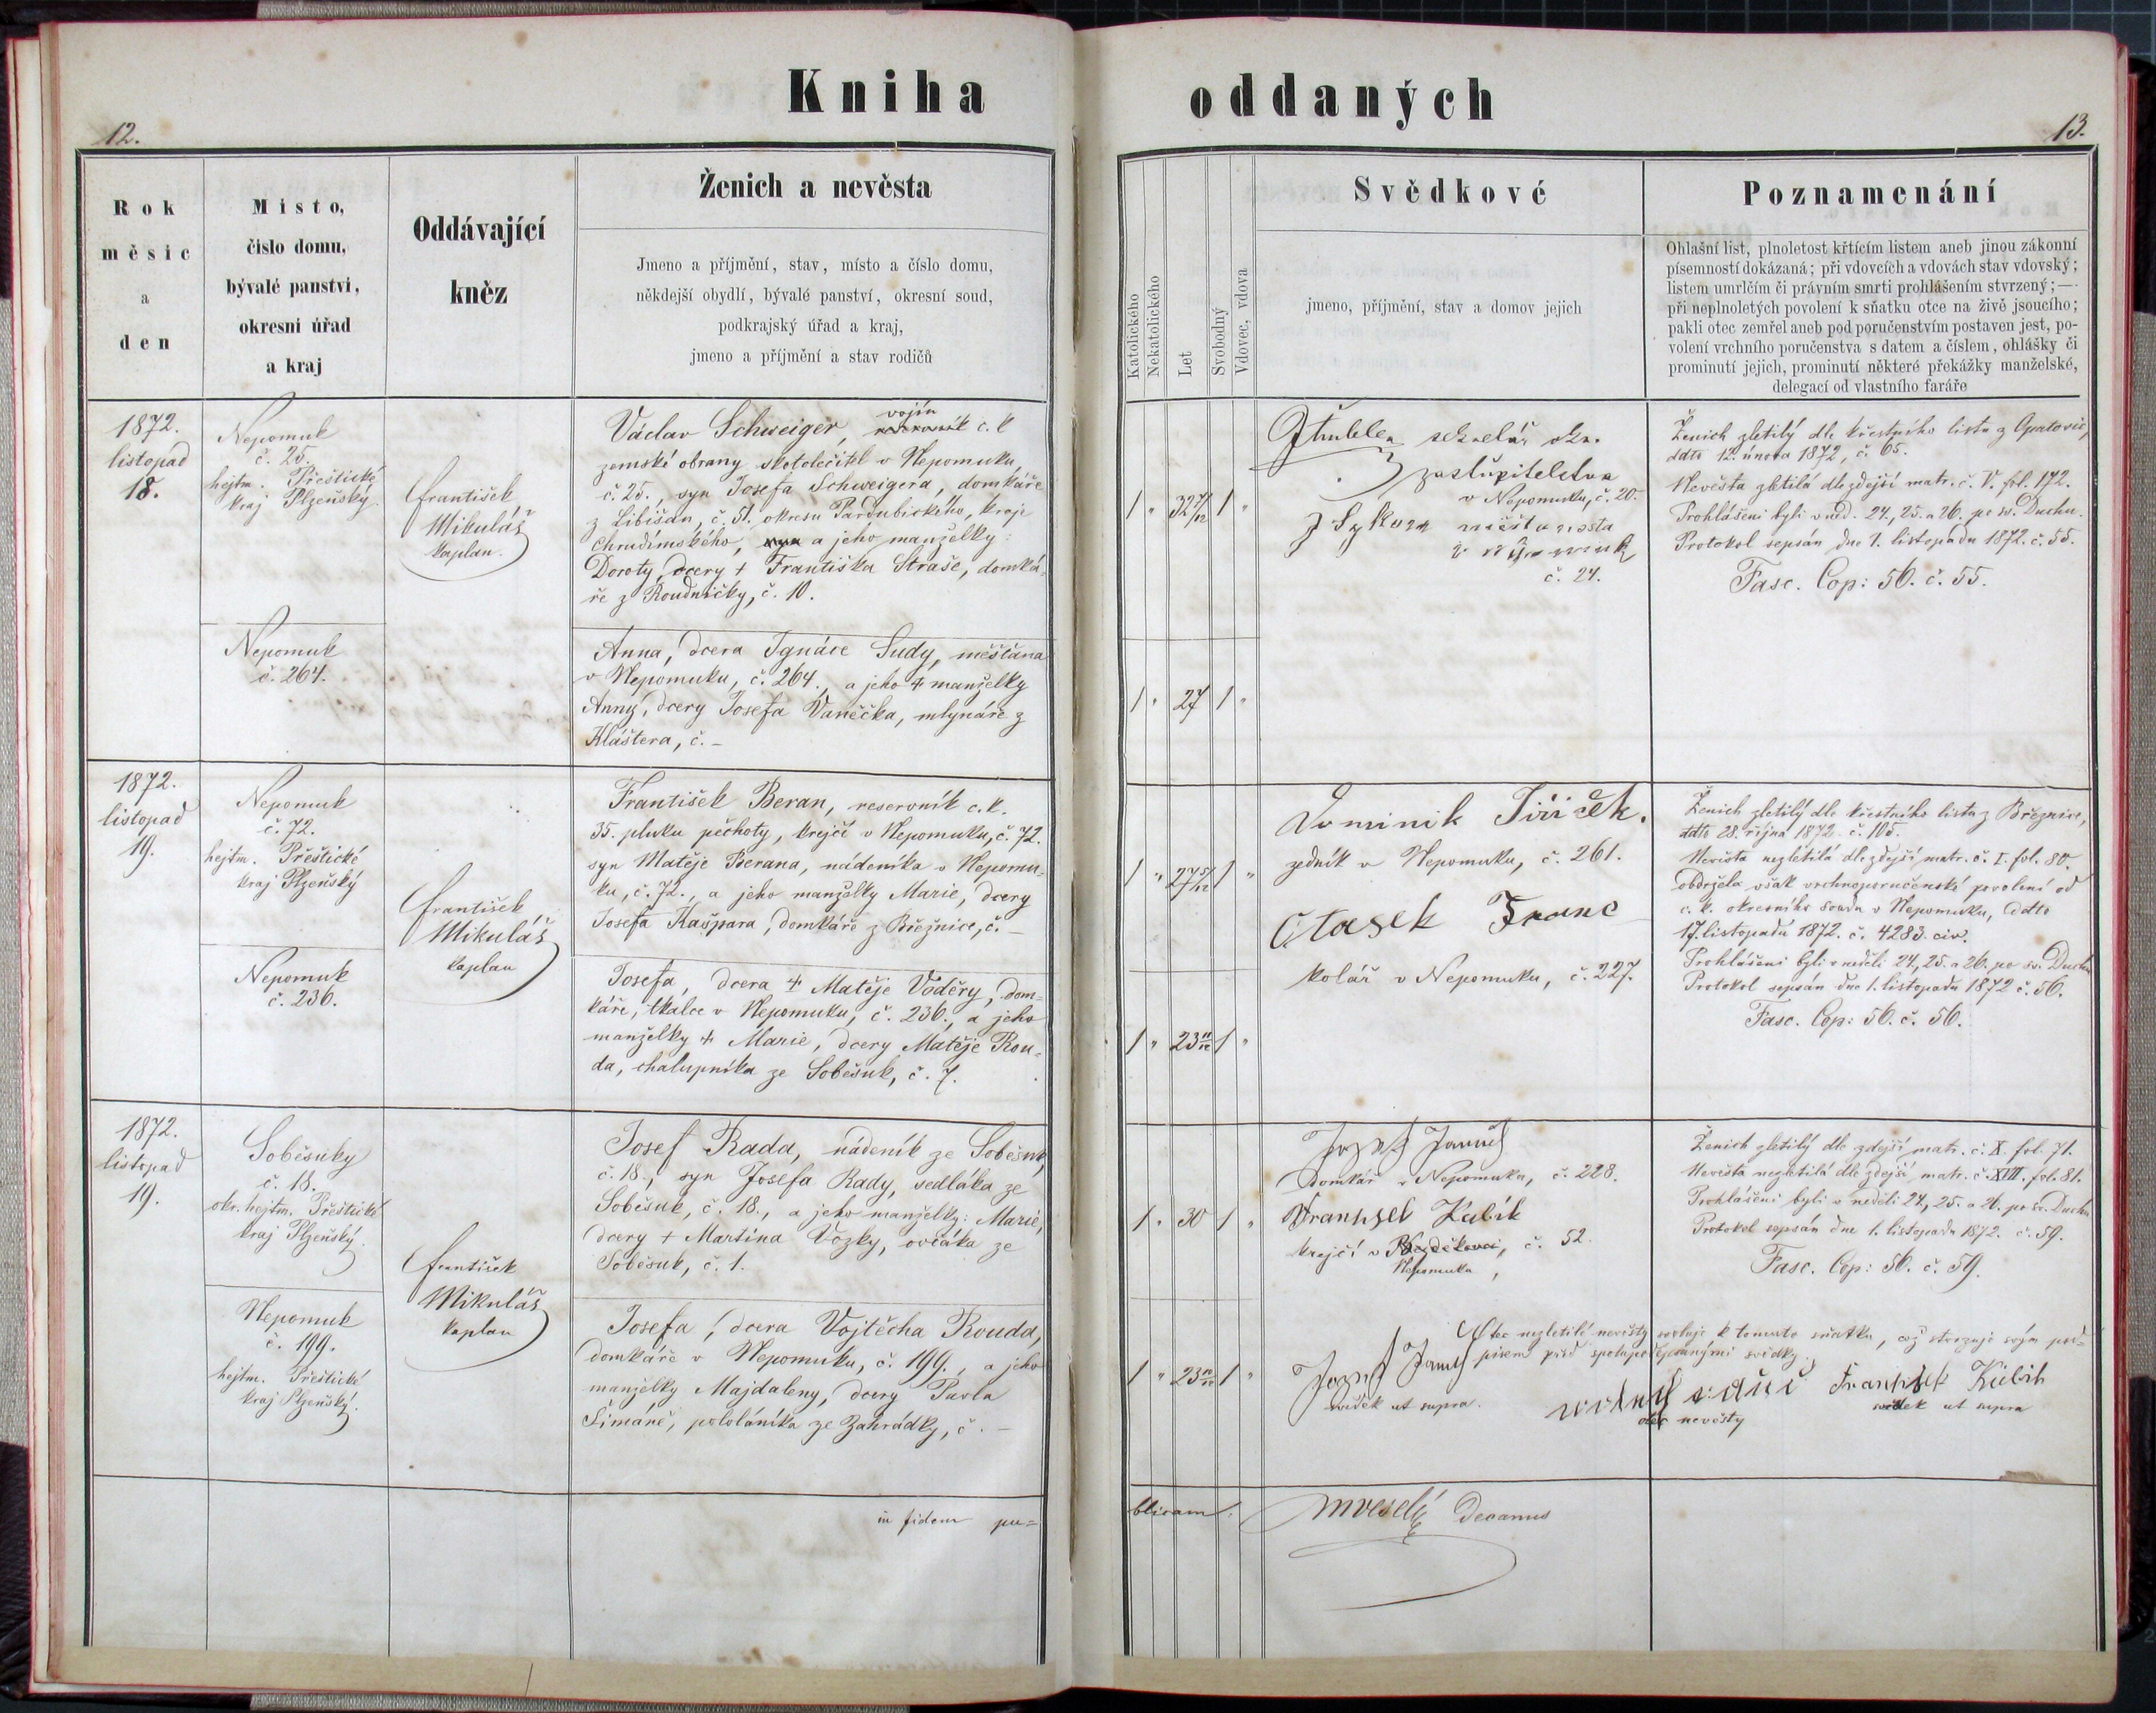 Kniha oddaných
12.
13.
Rok
měsíc
a
den
Místo,
číslo domu,
bývalé panství,
okresní úřad
a kraj
Oddávající
kněz
Ženich a nevěsta
Jmeno a příjmění, stav, místo a číslo domu,
někdejší obydlí, bývalé panství, okresní soud,
podkrajský úřad a kraj,
jmeno a příjmění a stav rodičů
Katolického
Nekatolického
Let
Svobodný
Vdovec, vdova
Svědkové
jmeno, příjmění, stav a domov jejich
Poznamenání
Ohlašní list, plnoletost křtícím listem aneb jinou zákonní
písemností dokázaná; při vdovcích a vdovách stav vdovský;
listem umrlčím či právním smrti prohlášením stvrzený;—
při neplnoletých povolení k sňatku otce na živě jsoucího;
pakli otec zemřel aneb pod poručenstvím postaven jest, po-
volení vrchního poručenstva s datem a číslem, ohlášky či
prominutí jejich, prominutí některé překážky manželské,
delegací od vlastního faráře
1872.
listopad
18.
Nepomuk
č. 25.
hejtm. Přeštické
kraj Plzeňský.
Nepomuk
č. 264.
František
Mikuláš
kaplan.
Václav Schweiger, vojín c. k
zemské obrany skotolečitel v Nepomuku,
č. 25., syn Josefa Schweigera, domkáře
z Libišan, č. 51. okresu Pardubického, kraje
Chrudimského, a jeho manželky:
Doroty, dcery + Františka Straše, domká-
ře z Roudničky, č. 10.
Anna, dcera Ignáce Sudy, měšťana
v Nepomuku, č. 264., a jeho + manželky
Anny, dcery Josefa Vaněčka, mlynáře z
Kláštera, č. –
1 " 32 1 "
1 " 27 1 "
sekretář okr.
zastupitelstva
v Nepomuku, č. 20.
J Sykora
č. 24.
Ženich zletilý dle křestního listu z Opatovic,
ddto 12. února 1872, č. 65.
Nevěsta zletilá dle zdejší matr. č. V. fol. 172.
Prohlášeni byli v ned. 24., 25. a 26. po sv. Duchu.
Protokol sepsán dne 1. listopadu 1872. č. 55.
Fasc. Cop: 56. č. 55.
1872.
listopad
19.
Nepomuk
č. 72.
hejtm. Přeštické
kraj Plzeňský
Nepomuk
č. 236.
František
Mikuláš
kaplan
František Beran, reservník c. k.
35. pluku pěchoty, krejčí v Nepomuku, č. 72.
syn Matěje Berana, nádeníka v Nepomu-
ku, č. 72., a jeho manželky Marie, dcery
Josefa Kašpara, domkáře z Březnice, č. –
Josefa, dcera + Matěje Voděry, dom=
káře, tkalce v Nepomuku, č. 236., a jeho
manželky + Marie, dcery Matěje Rou-
da, chalupníka ze Soběsuk, č. 7.
1 " 27 5/12 1 "
1 " 23 1 "
Dominik Jiřiček.
zedník v Nepomuku, č. 261.
Franc
kolář v Nepomuku, č. 227.
Ženich zletilý dle křestního listu z Březnice,
ddto 28. října 1872. č. 105.
Nevěsta nezletilá dle zdejší matr. č. I. fol. 80.
obdržela však vrchnoporučenské povolení od
c. k. okresního soudu v Nepomuku, ddto
17. listopadu 1872. č. 4283. civ.
Prohlášeni byli v neděli 24., 25. a 26. po sv. Duchu
Protokol sepsán dne 1. listopadu 1872 č. 56.
Fasc. Cop: 56. č. 56.
1872.
listopad
19.
Soběsuky
č. 18.
okr. hejtm. Přeštické
kraj Plzeňský.
Nepomuk
č. 199.
hejtm. Přeštické
kraj Plzeňský.
František
Mikuláš
kaplan
Josef Rada, nádeník ze Soběsuk,
č. 18., syn Josefa Rady, sedláka ze
Soběsuk, č. 18., a jeho manželky: Marie,
dcery + Martina Vozky, ovčáka ze
Soběsuk, č. 1.
Josefa, dcera Vojtěcha Rouda,
domkáře v Nepomuku, č. 199. a jeho
manželky Majdaleny, dcery Pavla
Šimáně, pololáníka ze Zahrádky, č. –
1 " 30 1 "
1 " 23 1 "
domkář v Nepomuku, č. 228.
Kubík
krejčí v č. 52.
Nepomuku,
Ženich zletilý dle zdejší matr. č. X. fol. 71.
Nevěsta nezletilá dle zdejší matr. č. XVII. fol. 81.
Prohlášeni byli v neděli 24., 25. a 26. po sv. Duchu
Protokol sepsán dne 1. listopadu 1872. č. 59.
Fasc. Cop: 56. č. 59.
Otec nezletilé nevěsty svoluje k tomuto sňatku, což stvrzuje svým pod-
pisem před spolupodepsanými svědky.
svědek ut supra.
otec nevěsty
František Kubík
svědek ut supra
in fidem pu=
blicam.
Veselý Decanus